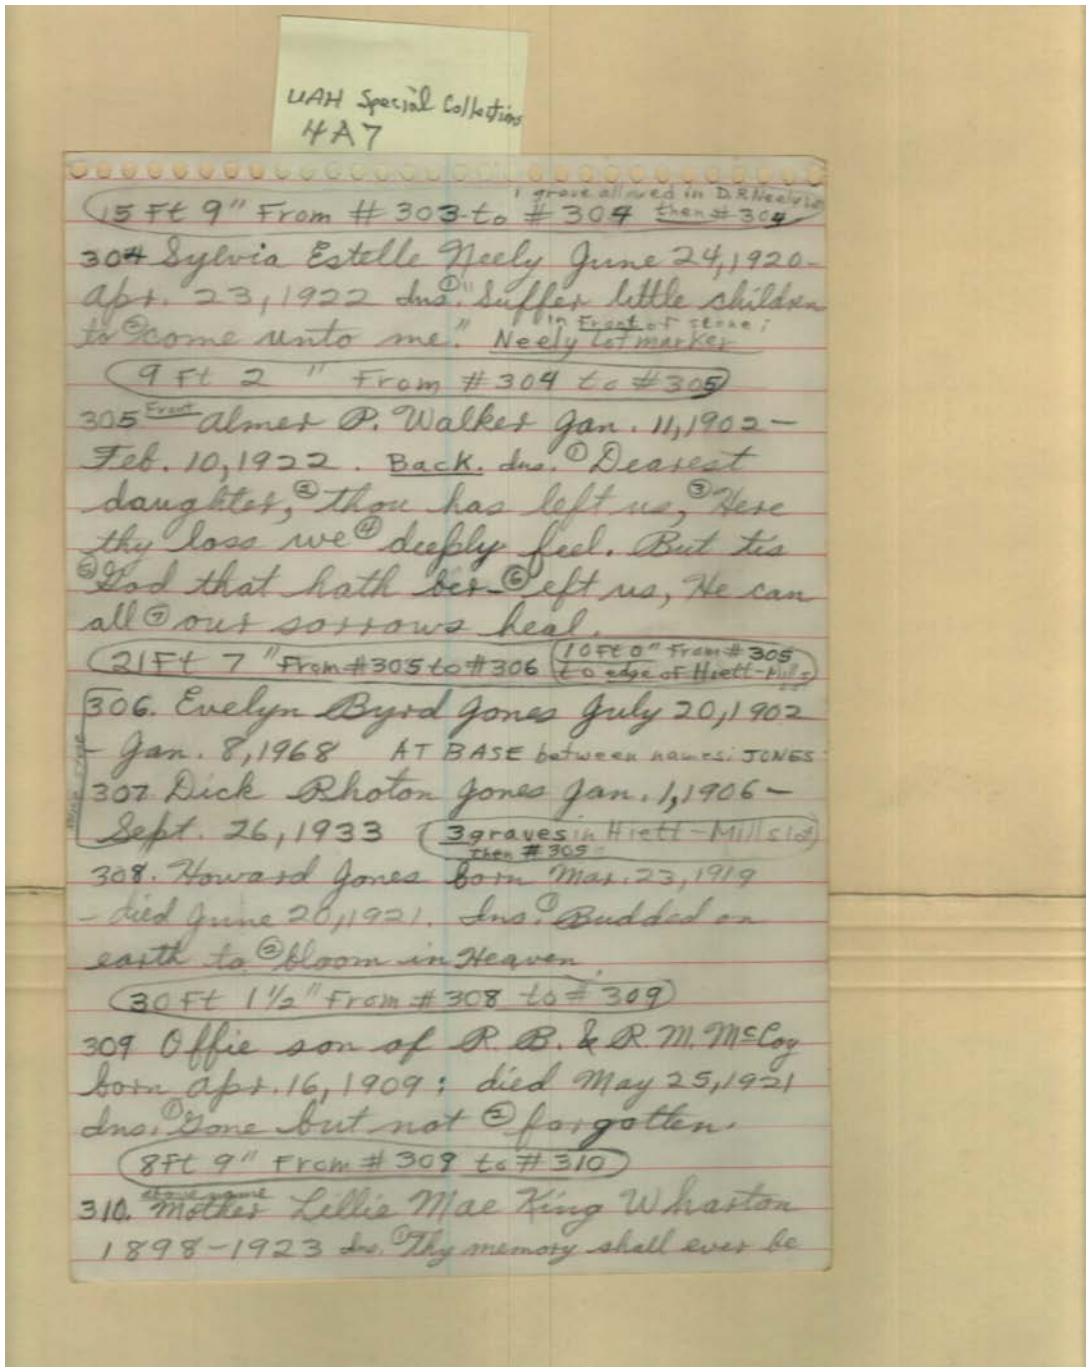 UAH Special Collections
4A7
1 grave allowed in D.R. Neely Lot
15 Ft 9" From # 303 to # 304 then # 304
304 Sylvia Estelle Neely June 24, 1920 -
Apr. 23, 1922 Ins. ① "Suffer little children
to ② come unto me." in Front of stone;
Neely Lot marker
9 Ft 2 " From # 304 to # 305
305 Front Almer P. Walker Jan. 11, 1902 -
Feb. 10, 1922. Back. Ins. ① Dearest
daughter, ② thou has left us, ③ Here
thy loss we ④ deeply feel. But tis
⑤ God that hath ber- ⑥ eft us, He can
all ⑦ our sorrows heal.
21 Ft 7 " From # 305 to # 306
10 Ft 0" From # 305
to edge of Hiett-Mills
306. Evelyn Byrd Jones July 20, 1902
- Jan. 8, 1968 AT BASE between names: JONES
307 Dick Rhoton Jones Jan. 1, 1906 -
Sept. 26, 1933
3 graves in Hiett-Mills lot
then # 305
308. Howard Jones born Mar. 23, 1919
- died June 20, 1921. Ins. ① Budded on
earth to ② bloom in Heaven
30 Ft 1 1/2" From # 308 to # 309
309 Offie son of R. B. & R. M. McCoy
born Apr. 16, 1909; died May 25, 1921
Ins. ① Gone but not ② forgotten.
8 Ft 9" From # 309 to # 310
310. above name Mother Lillie Mae King Wharton
1898-1923 Ins. ① Thy memory shall ever be